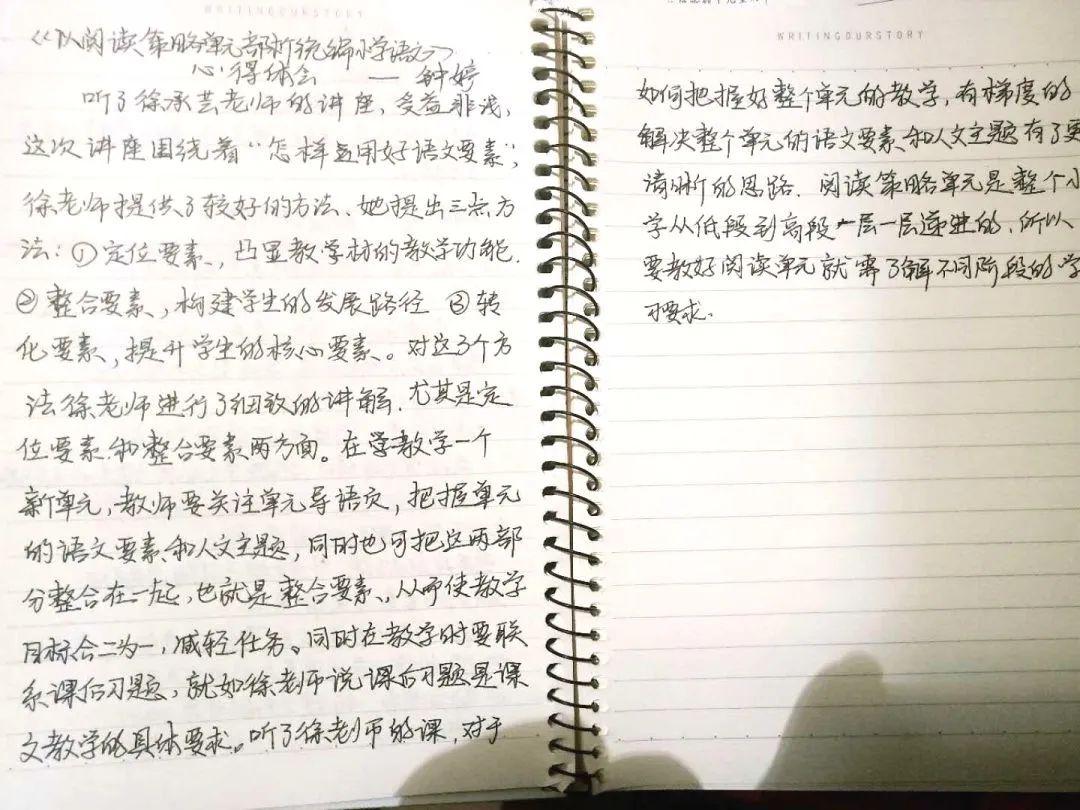 WRITINGOURSTORY
《以阅读策略单元部析统编小学语文》
心得体会 — 钟婷
听了徐承芸老师的讲座，受益非浅，
这次讲座围绕着“怎样运用好语文要素”，
徐老师提供了较好的方法、她提出三点方
法：①定位要素，凸显教学材的教学功能.
②整合要素，构建学生的发展路径 ③转
化要素，提升学生的核心要素。对这3个方
法徐老师进行了细致的讲解.尤其是定
位要素和整合要素两方面。在学教学一个
新单元，教师要关注单元导语页，把握单元
的语文要素和人文主题，同时也可把这两部
分整合在一起，也就是整合要素，从而使教学
目标合二为一，减轻任务。同时在教学时要联
系课后习题，就如徐老师说课后习题是课
文教学的具体要求。听了徐老师的课，对于
WRITINGOURSTORY
如何把握好整个单元的教学，有梯度的
解决整个单元的语文要素和人文主题有了更
清晰的思路.阅读策略单元是整个小
学从低段到高段一层一层递进的.所以
要教好阅读单元就需了解不同阶段的学
习要求.